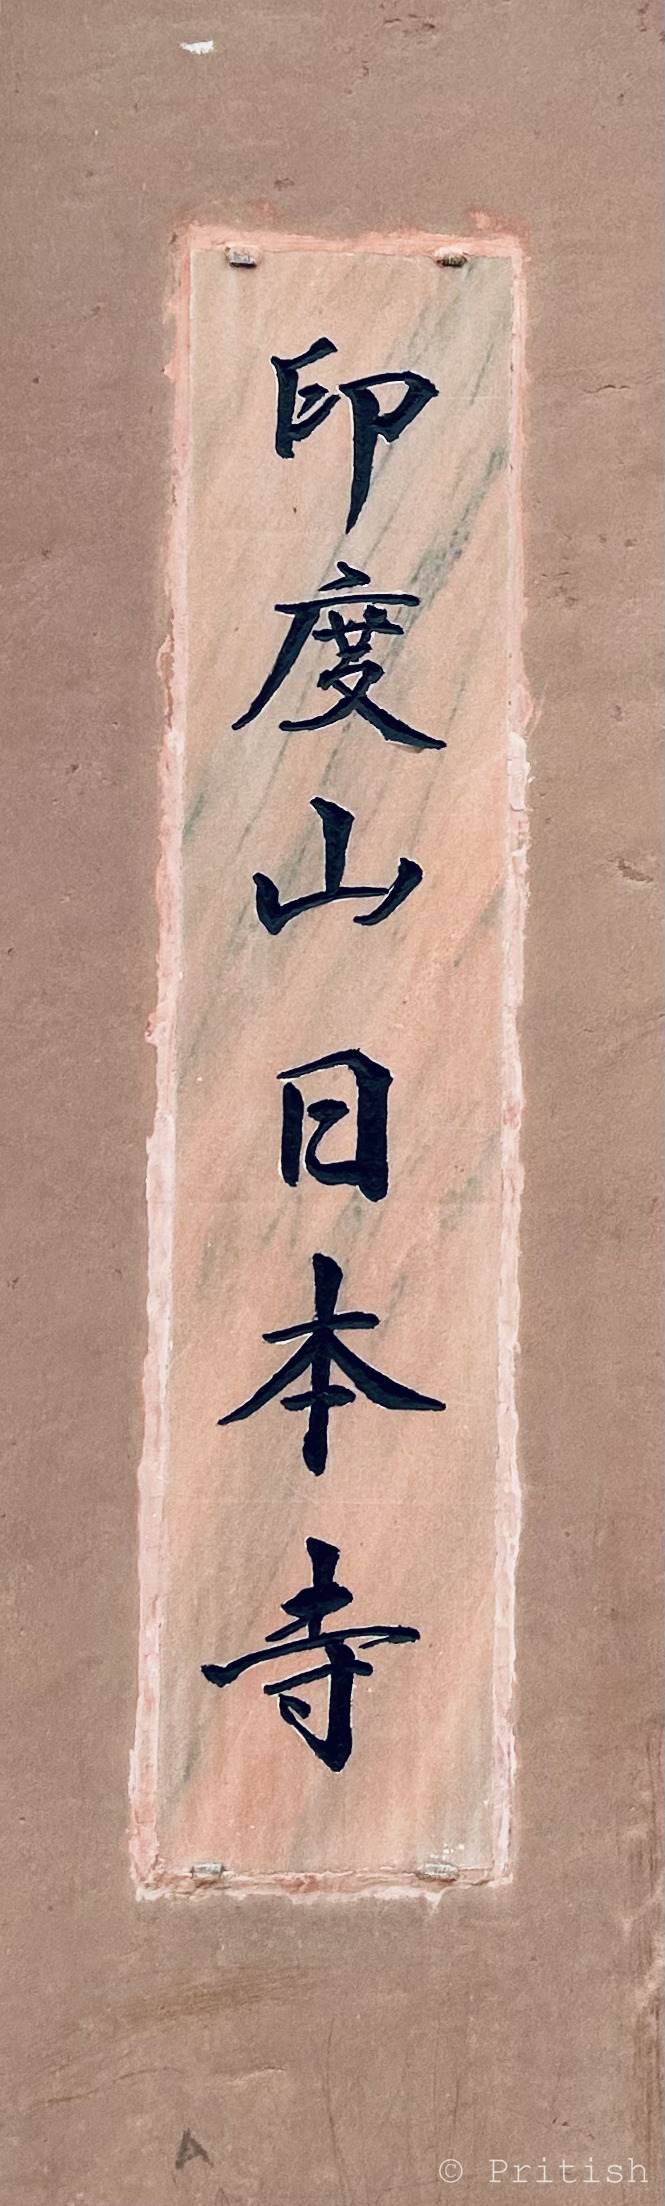 印度山日本寺
© Pritish